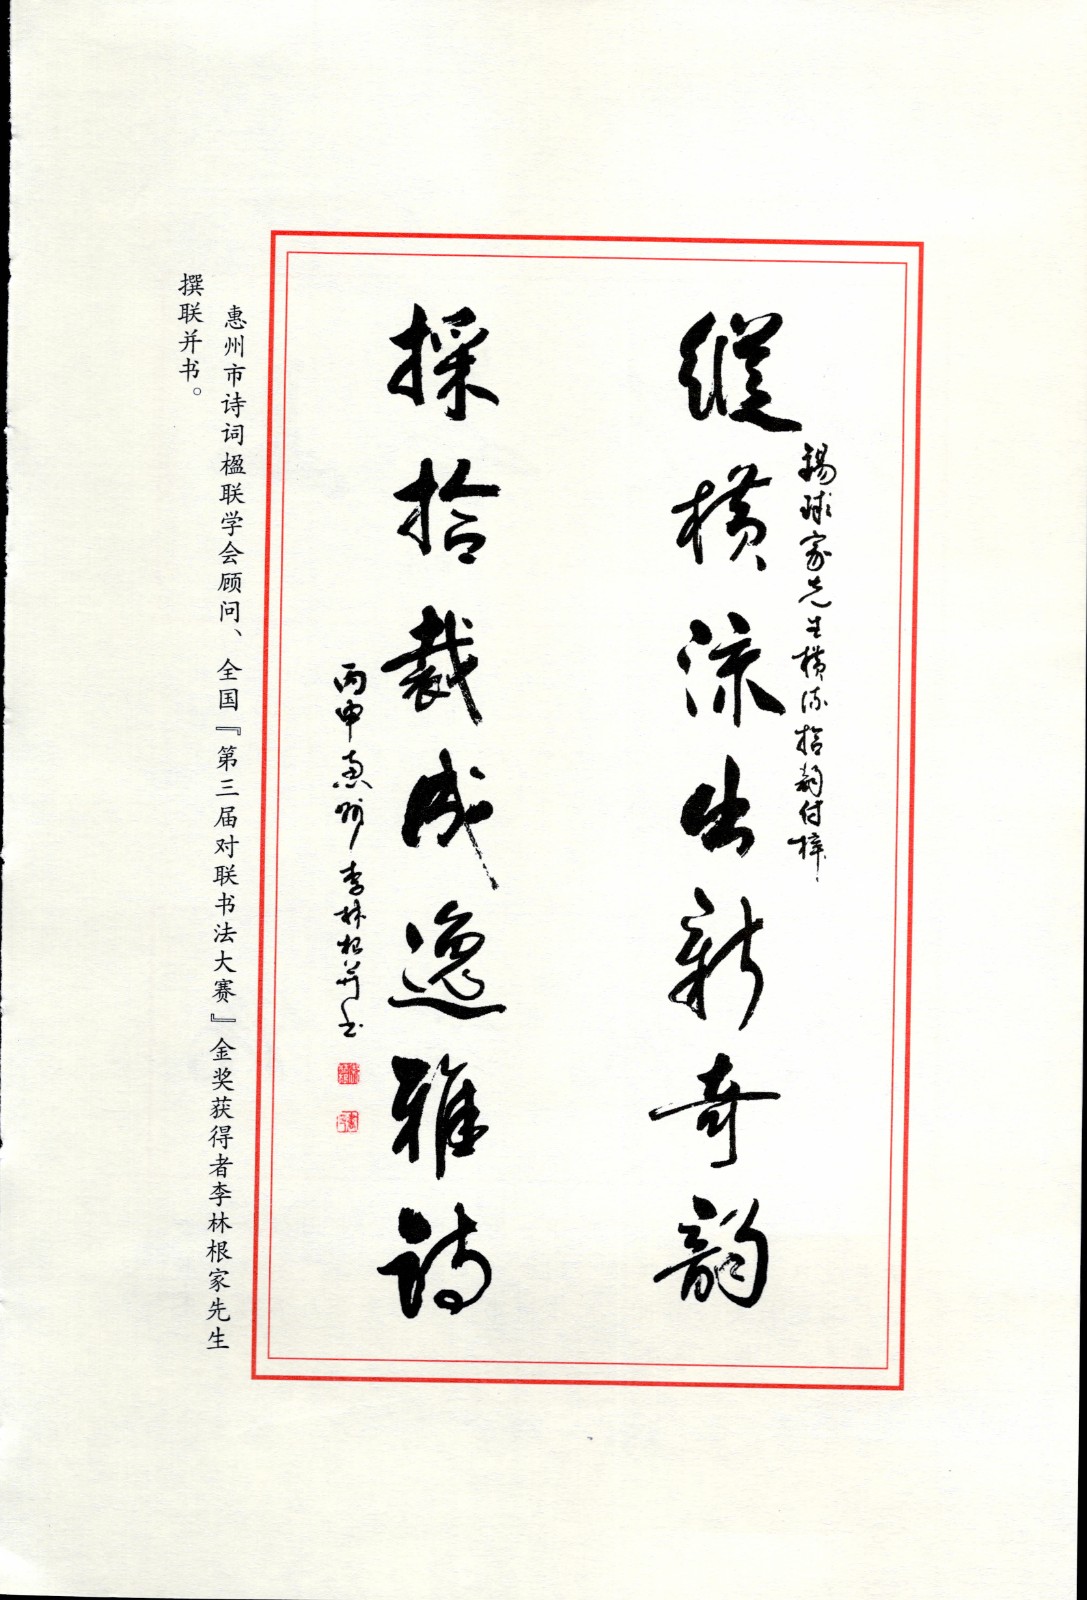 錫球家先生横流拾韵付梓
縱横流出新奇韵
採拾裁成逸雅詩
丙申惠州李林根并书
惠州市诗词楹联学会顾问、全国『第三届对联书法大赛』金奖获得者李林根家先生
撰联并书。